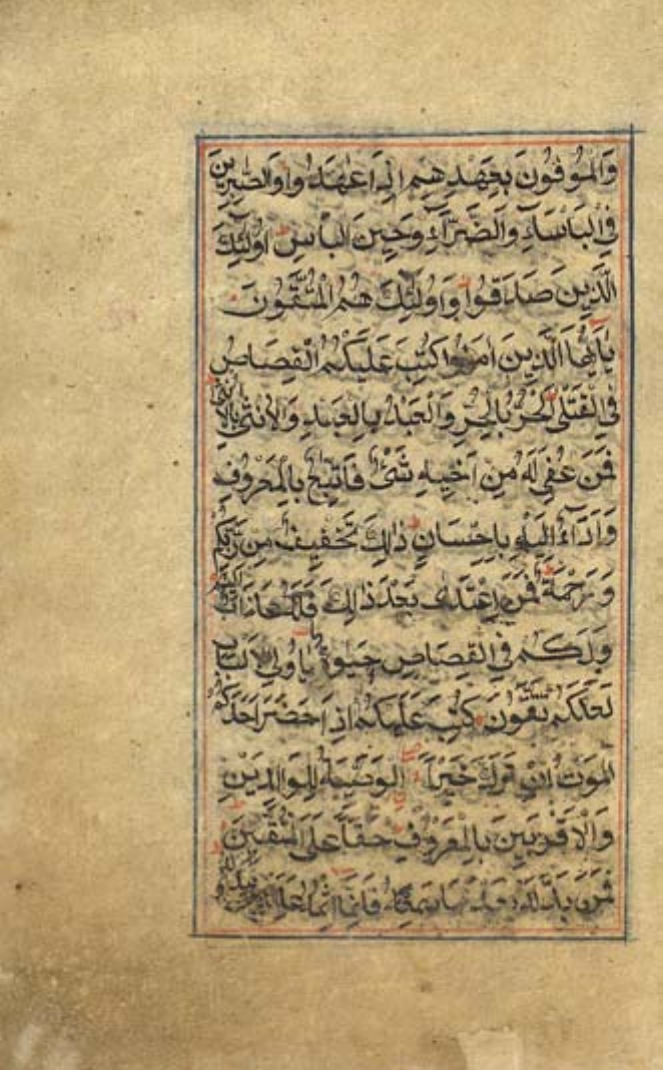 وَالْمُوفُونَ بِعَهْدِهِمْ اِذَا عٰهَدُوا وَالصّٰبِرِينَ
فِي الْبَاْسَاۤءِ وَالضَّرَّاۤءِ وَحِينَ الْبَاْسِ اُولٰۤئِكَ
الَّذِينَ صَدَقُوا وَاُولٰۤئِكَ هُمُ الْمُتَّقُونَ
يَاۤاَيُّهَا الَّذِينَ اٰمَنُوا كُتِبَ عَلَيْكُمُ الْقِصَاصُ
فِي الْقَتْلٰى اَلْحُرُّ بِالْحُرِّ وَالْعَبْدُ بِالْعَبْدِ وَالْاُنْثٰى بِالْاُنْثٰى
فَمَنْ عُفِيَ لَهُ مِنْ اَخِيهِ شَيْءٌ فَاتِّبَاعٌ بِالْمَعْرُوفِ
وَاَدَاۤءٌ اِلَيْهِ بِاِحْسَانٍ ذٰلِكَ تَخْفِيفٌ مِنْ رَبِّكُمْ
وَرَحْمَةٌ فَمَنِ اعْتَدٰى بَعْدَ ذٰلِكَ فَلَهُ عَذَابٌ اَلِيمٌ
وَلَكُمْ فِي الْقِصَاصِ حَيٰوةٌ يَاۤاُولِي الْاَلْبَابِ
لَعَلَّكُمْ تَتَّقُونَ كُتِبَ عَلَيْكُمْ اِذَا حَضَرَ اَحَدَكُمُ
الْمَوْتُ اِنْ تَرَكَ خَيْرًا الْوَصِيَّةُ لِلْوَالِدَيْنِ
وَالْاَقْرَبِينَ بِالْمَعْرُوفِ حَقًّا عَلَى الْمُتَّقِينَ
فَمَنْ بَدَّلَهُ بَعْدَ مَا سَمِعَهُ فَاِنَّمَا اِثْمُهُ عَلَى